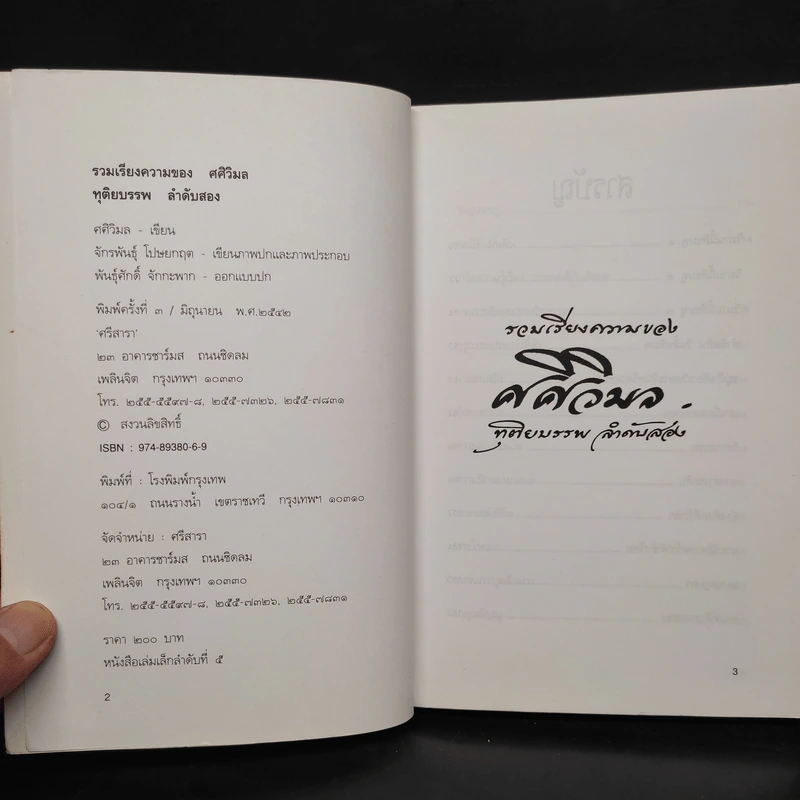 รวมเรียงความของ ศศิวิมล
ทุติยบรรพ ลำดับสอง
ศศิวิมล - เขียน
จักรพันธุ์ โปษยกฤต - เขียนภาพปกและภาพประกอบ
พันธุ์ศักดิ์ จักกะพาก - ออกแบบปก
พิมพ์ครั้งที่ ๓ / มิถุนายน พ.ศ.๒๕๔๒
'ศรีสารา'
๒๓ อาคารชาร์มส ถนนชิดลม
เพลินจิต กรุงเทพฯ ๑๐๓๓๐
โทร. ๒๕๕-๕๕๙๗-๘, ๒๕๕-๗๓๒๖, ๒๕๕-๗๘๓๑
© สงวนลิขสิทธิ์
ISBN : 974-89380-6-9
พิมพ์ที่ : โรงพิมพ์กรุงเทพ
๑๐๔/๑ ถนนรางน้ำ เขตราชเทวี กรุงเทพฯ ๑๐๓๑๐
จัดจำหน่าย : ศรีสารา
๒๓ อาคารชาร์มส ถนนชิดลม
เพลินจิต กรุงเทพฯ ๑๐๓๓๐
โทร. ๒๕๕-๕๕๙๗-๘, ๒๕๕-๗๓๒๖, ๒๕๕-๗๘๓๑
ราคา ๒๐๐ บาท
หนังสือเล่มเล็กลำดับที่ ๕
2
รวมเรียงความของ
ศศิวิมล .
ทุติยบรรพ ลำดับสอง
3